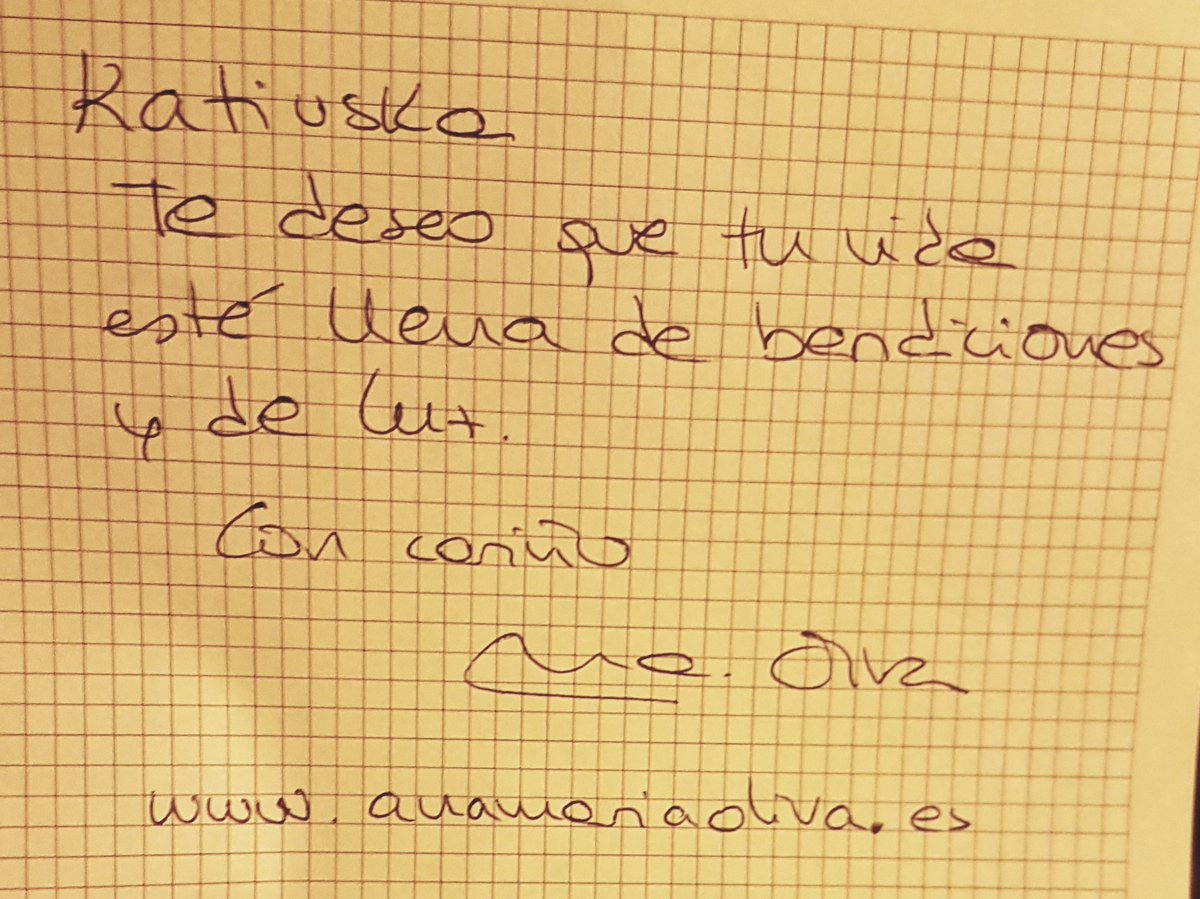 Katiuska
Te deseo que tu vida
esté llena de bendiciones
y de luz.
Con cariño
Ana. Oliva
www.anamariaoliva.es